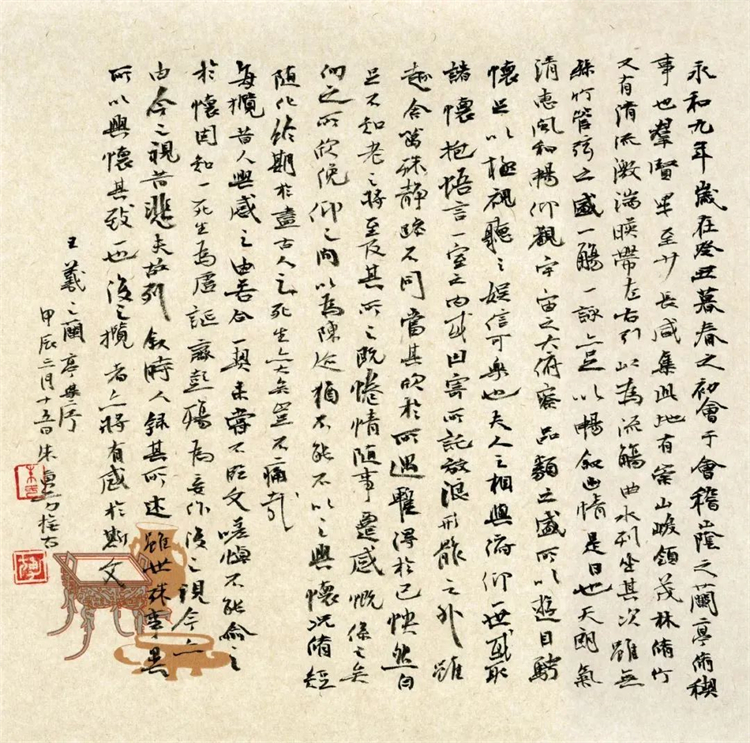 永和九年歲在癸丑暮春之初會于會稽山陰之蘭亭脩稧
事也羣賢畢至少長咸集此地有崇山峻領茂林脩竹
又有清流激湍暎帶左右引以為流觴曲水列坐其次雖無
絲竹管弦之盛一觴一詠亦足以暢敘幽情是日也天朗氣
清惠風和暢仰觀宇宙之大俯察品類之盛所以遊目騁
懷足以極視聽之娛信可樂也夫人之相與俯仰一世或取
諸懷抱悟言一室之內或因寄所託放浪形骸之外雖
趣舍萬殊静躁不同當其欣於所遇暫得於己怏然自
足不知老之將至及其所之既惓情隨事遷感慨係之矣
向之所欣俛仰之間以為陳迹猶不能不以之興懷況脩短
隨化終期於盡古人云死生亦大矣豈不痛哉
每攬昔人興感之由若合一契未嘗不臨文嗟悼不能喻之
於懷固知一死生為虛誕齊彭殤為妄作後之視今亦
由今之視昔悲夫故列敘時人錄其所述雖世殊事異
所以興懷其致一也後之攬者亦將有感於斯文
王羲之蘭亭集序
甲辰二月十五日朱